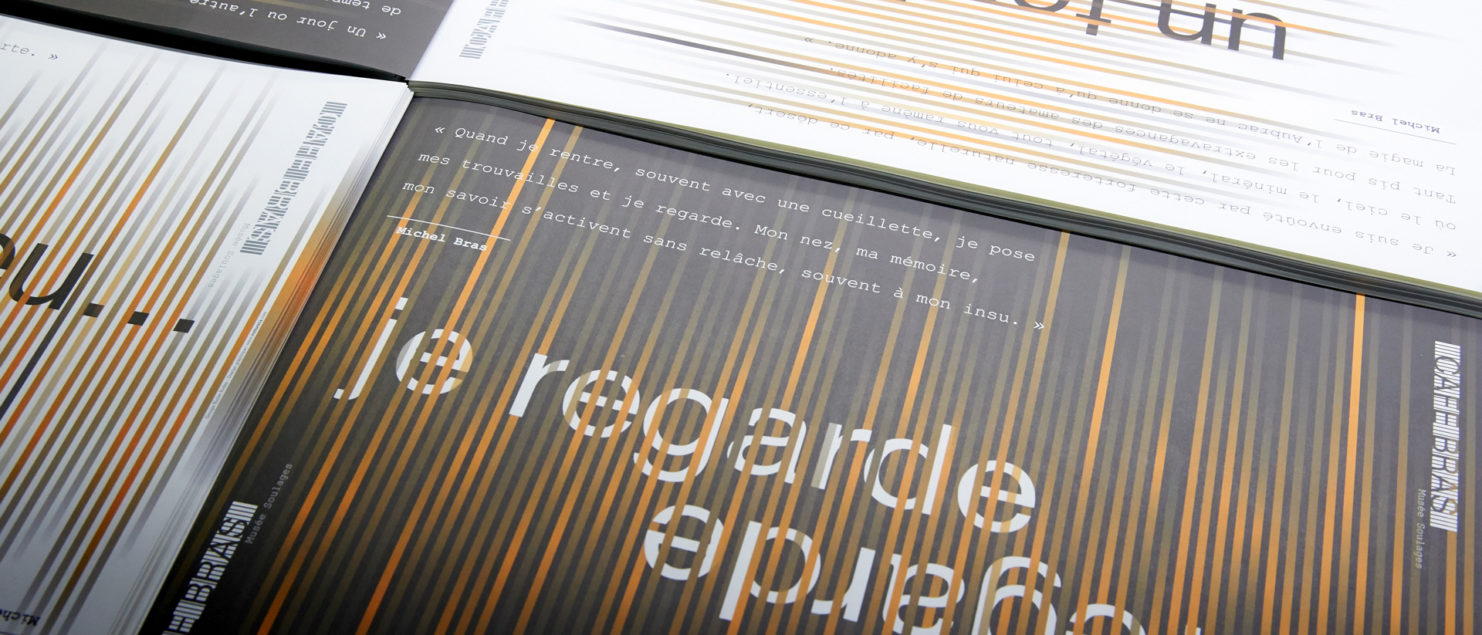 « Quand je rentre, souvent avec une cueillette, je pose
mes trouvailles et je regarde. Mon nez, ma mémoire,
mon savoir s’activent sans relâche, souvent à mon insu. »
Michel Bras
je regarde
regarde
Musée Soulages
Musée Soulages
« Je suis envoûté par cette forteresse naturelle, par ce désert,
où le ciel, le minéral, le végétal, tout vous ramène à l’essentiel.
Tant pis pour les extravagances des amateurs de facilités.
La magie de l’Aubrac ne se donne qu’à celui qui s’y adonne. »
Michel Bras
un
« Un jour ou l’autre
de
rte. »
eu...
Musée Soulages